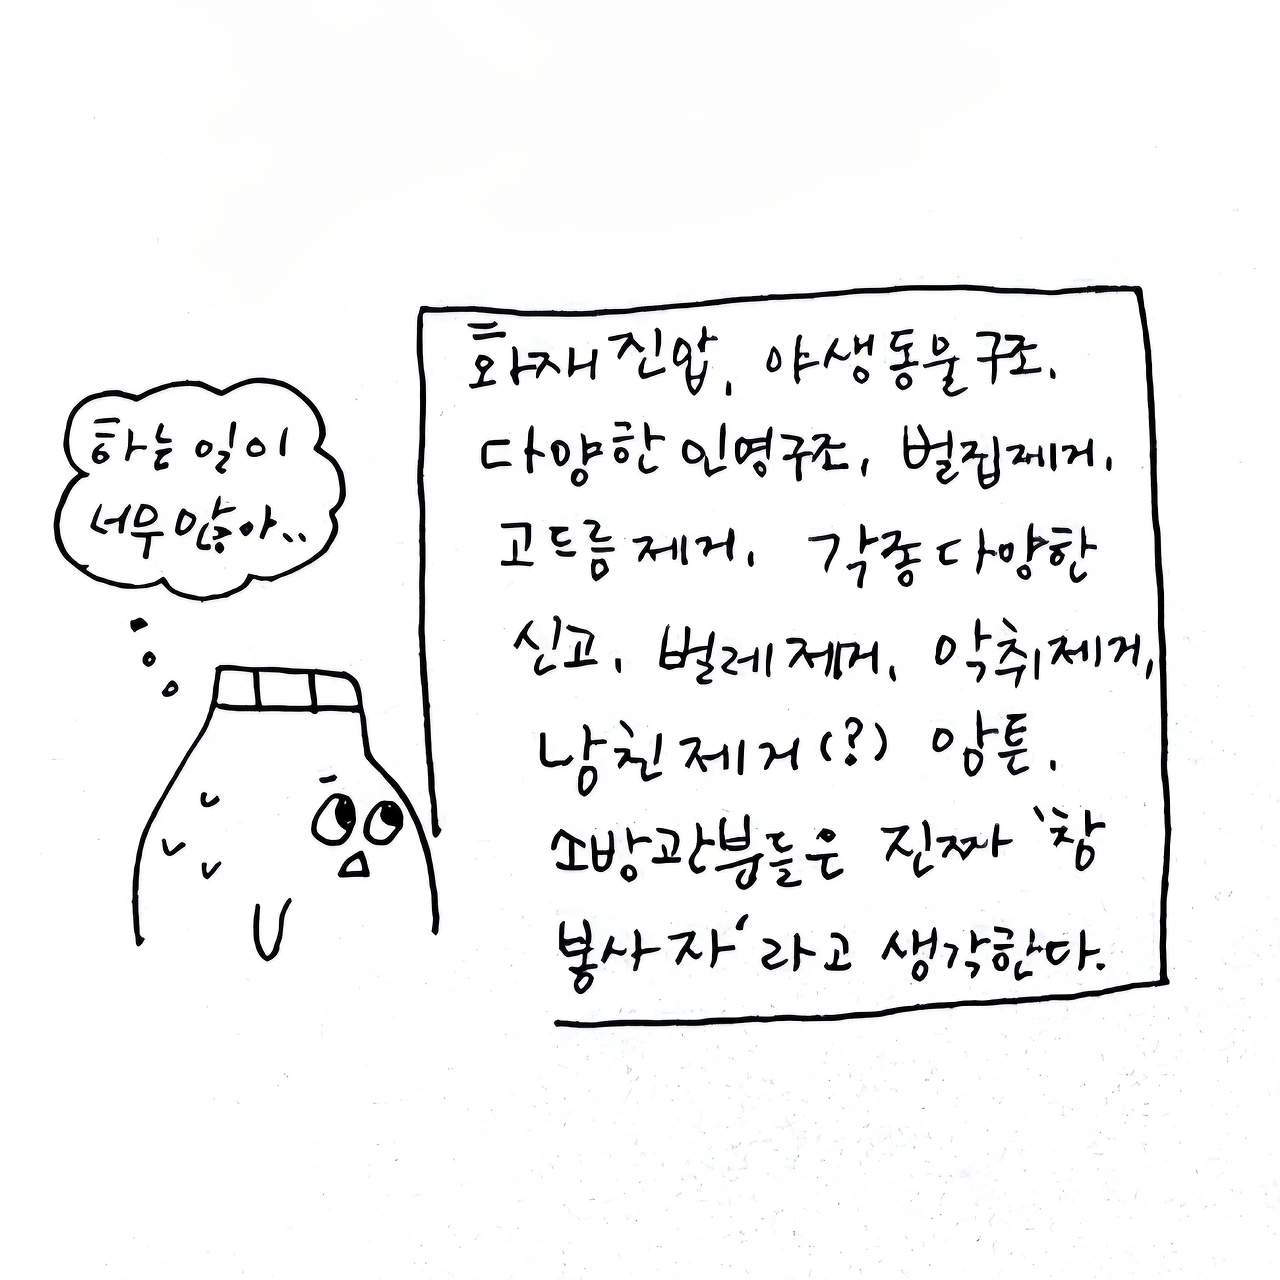 하는 일이
너무 많아..
화재 진압, 야생동물구조,
다양한 인명구조, 벌집제거,
고드름 제거, 각종 다양한
신고, 벌레 제거, 악취제거,
남친 제거(?) 암튼,
소방관분들은 진짜 '참
봉사자'라고 생각한다.